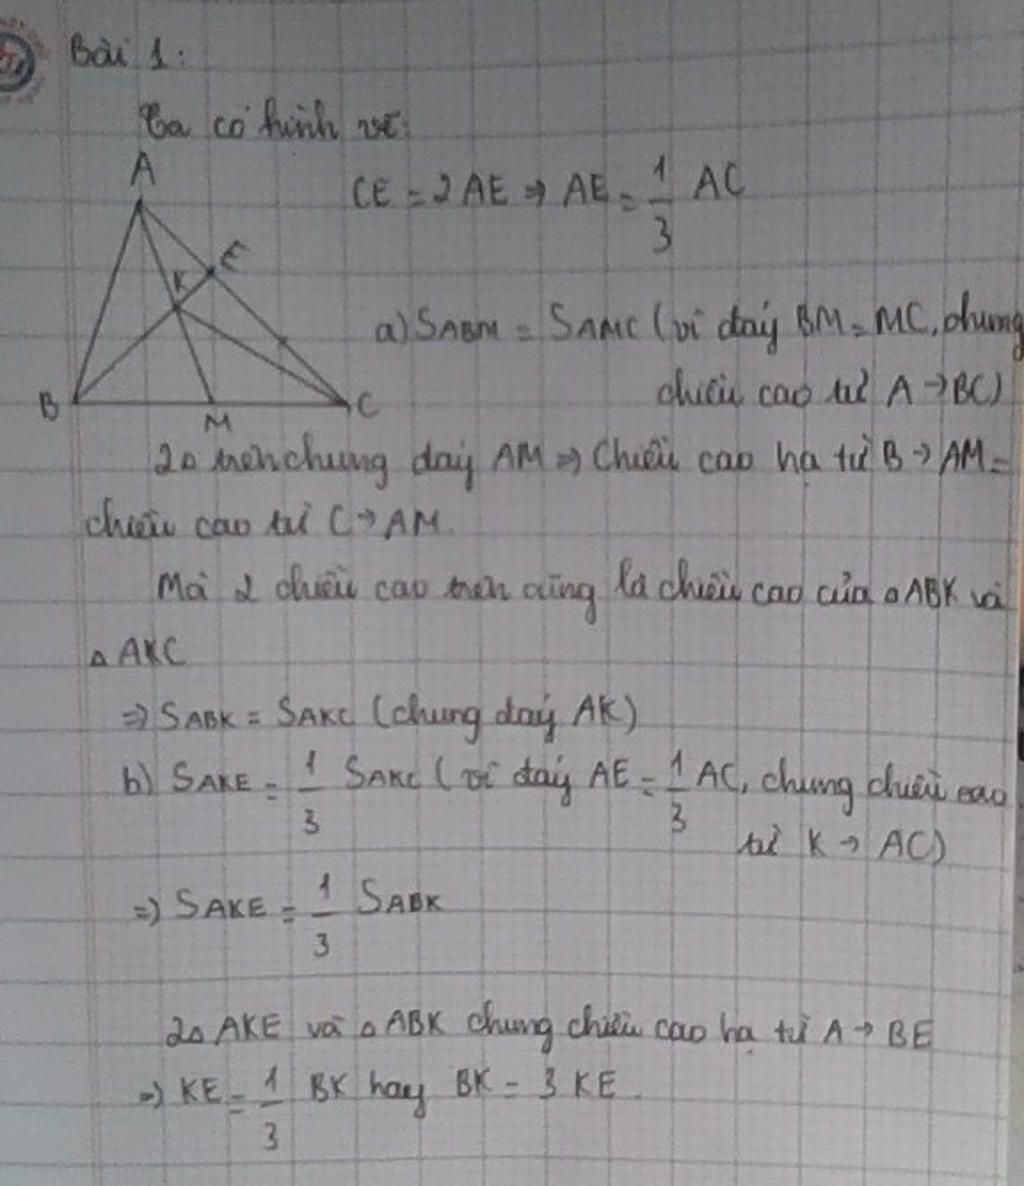 Bài 1:
Ta có hình vẽ:
A
CE = 2 AE ⇒ AE = 1/3 AC
E
K
a) SABM = SAMC (vì đáy BM = MC, chung
chiều cao từ A → BC)
B
M
C
2Δ trên chung đáy AM ⇒ Chiều cao hạ từ B → AM =
chiều cao từ C → AM.
Mà 2 chiều cao trên cũng là chiều cao của Δ ABK và
Δ AKC
⇒ SABK = SAKC (chung đáy AK)
b) SAKE = 1/3 SAKC (vì đáy AE = 1/3 AC, chung chiều cao
từ K → AC)
⇒ SAKE = 1/3 SABK
2Δ AKE và Δ ABK chung chiều cao hạ từ A → BE
⇒ KE = 1/3 BK hay BK = 3 KE.